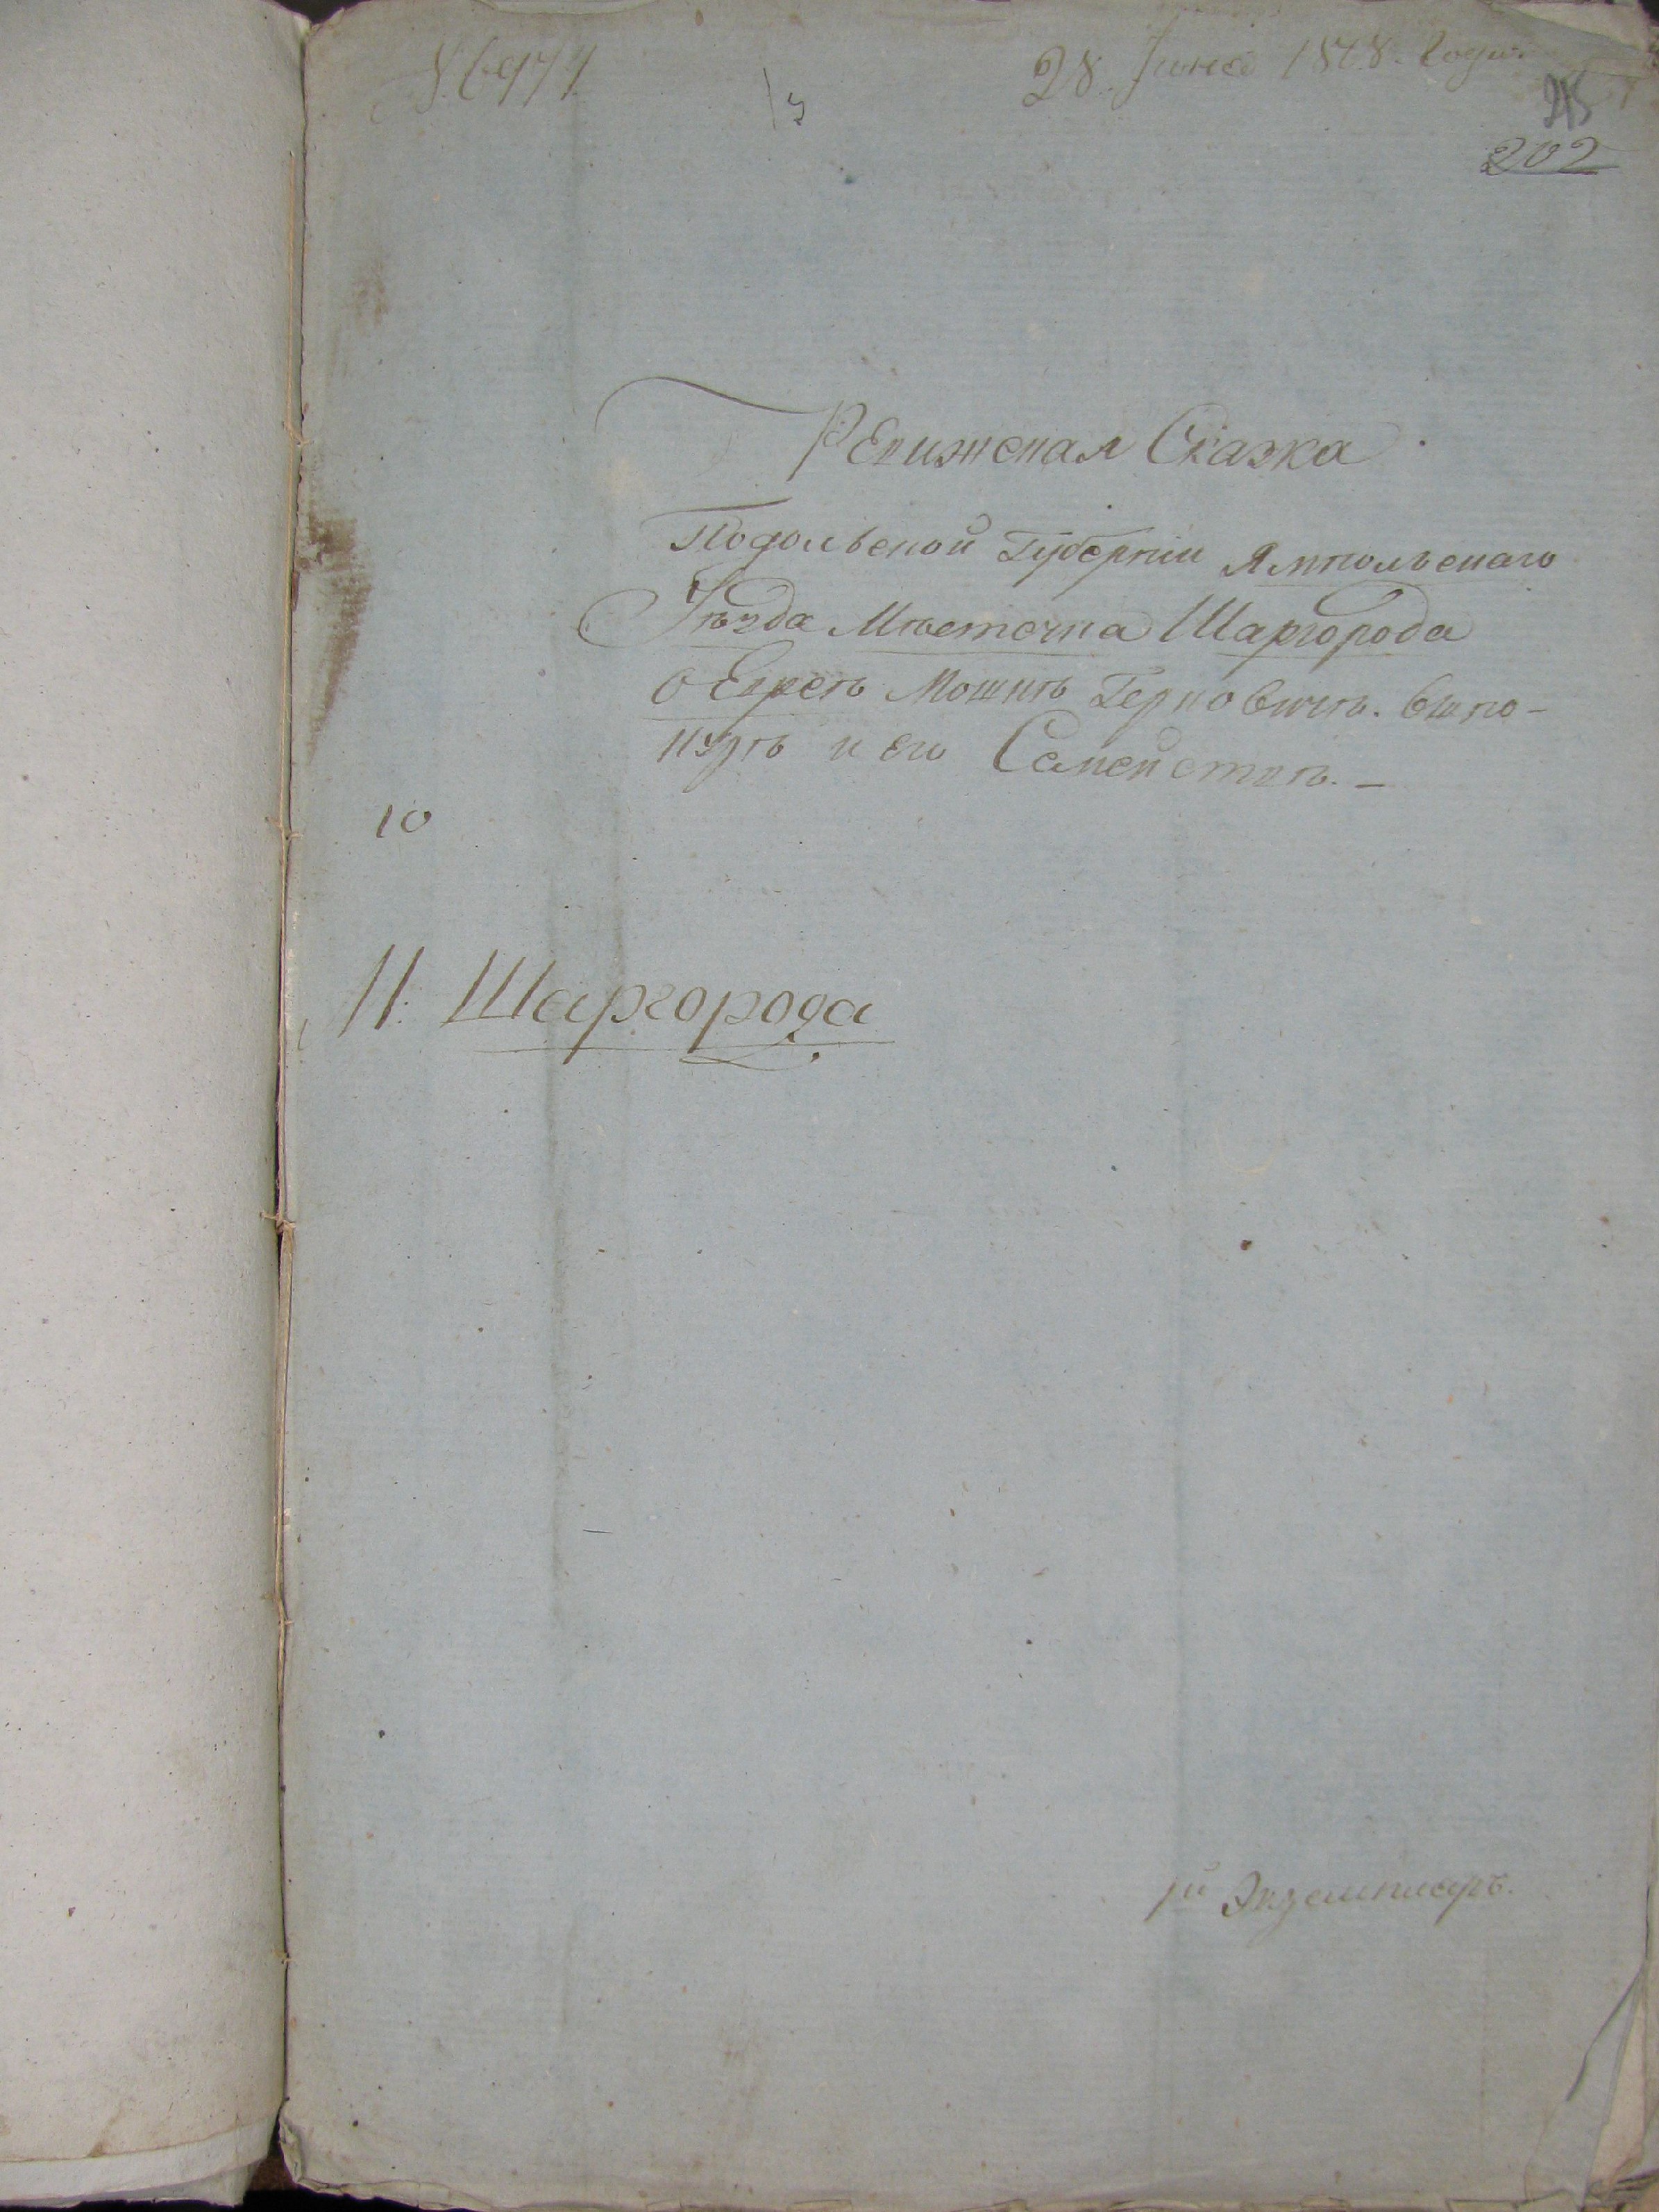 28. Іюня 1818. Года.
202
Ревижская Сказка
Подольской Губернии Ямпольскаго
Уѣзда Мѣстечка Шаргорода
о Евреѣ Мошкѣ Герковичѣ
и его Семействѣ. —
10
М. Шаргорода
1й Экземпляръ.